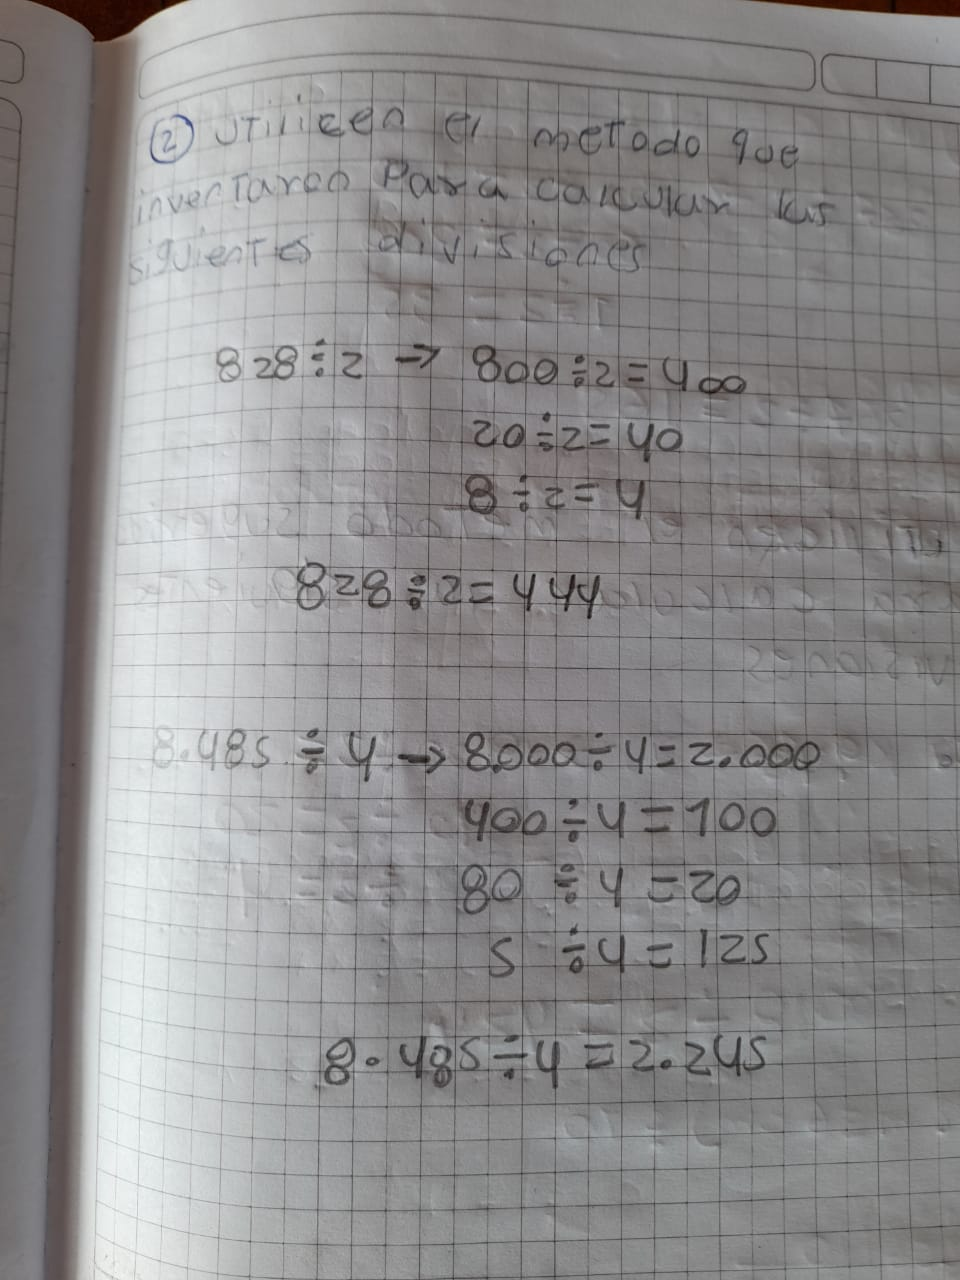 ② Utilicen el metodo que
inventaron Para calcular las
siguientes divisiones
828÷2 → 800÷2=400
20÷2=40
8÷2=4
828÷2=444
8.485 ÷ 4 → 8.000÷4=2.000
400÷4=100
80 ÷4=20
5 ÷4=125
8.485÷4=2.245